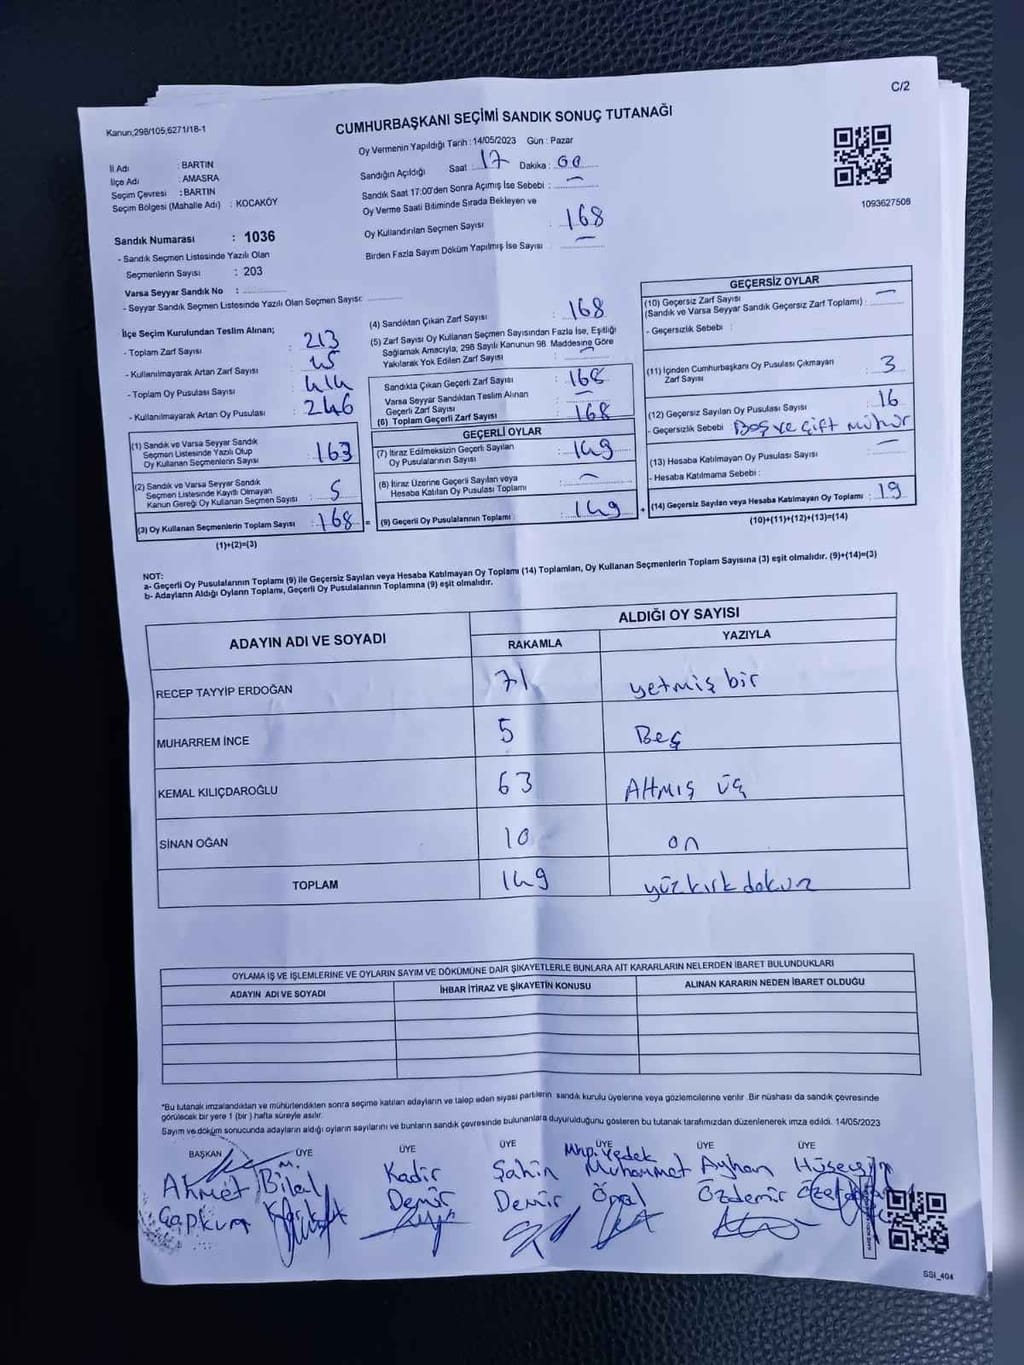 C/2
Kanun;298/105;6271/18-1
CUMHURBAŞKANI SEÇİMİ SANDIK SONUÇ TUTANAĞI
Oy Vermenin Yapıldığı Tarih : 14/05/2023 Gün : Pazar
İl Adı : BARTIN
İlçe Adı : AMASRA
Seçim Çevresi : BARTIN
Seçim Bölgesi (Mahalle Adı) : KOCAKÖY
Sandığın Açıldığı Saat : 17 Dakika : 00
Sandık Saat 17:00'den Sonra Açılmış İse Sebebi : —
Oy Verme Saati Bitiminde Sırada Bekleyen ve
Oy Kullandırılan Seçmen Sayısı : 168
Birden Fazla Sayım Döküm Yapılmış İse Sayısı : —
1093627508
Sandık Numarası : 1036
- Sandık Seçmen Listesinde Yazılı Olan
Seçmenlerin Sayısı : 203
Varsa Seyyar Sandık No :
- Seyyar Sandık Seçmen Listesinde Yazılı Olan Seçmen Sayısı:
İlçe Seçim Kurulundan Teslim Alınan;
- Toplam Zarf Sayısı : 213
- Kullanılmayarak Artan Zarf Sayısı : 45
- Toplam Oy Pusulası Sayısı : 414
- Kullanılmayarak Artan Oy Pusulası : 246
(1) Sandık ve Varsa Seyyar Sandık
Seçmen Listesinde Yazılı Olup
Oy Kullanan Seçmenlerin Sayısı : 163
(2) Sandık ve Varsa Seyyar Sandık
Seçmen Listesinde Kayıtlı Olmayan
Kanun Gereği Oy Kullanan Seçmen Sayısı : 5
(3) Oy Kullanan Seçmenlerin Toplam Sayısı : 168 =
(1)+(2)=(3)
(4) Sandıktan Çıkan Zarf Sayısı : 168
(5) Zarf Sayısı Oy Kullanan Seçmen Sayısından Fazla İse, Eşitliği
Sağlamak Amacıyla, 298 Sayılı Kanunun 98. Maddesine Göre
Yakılarak Yok Edilen Zarf Sayısı : —
Sandıkta Çıkan Geçerli Zarf Sayısı : 168
Varsa Seyyar Sandıktan Teslim Alınan
Geçerli Zarf Sayısı : —
(6) Toplam Geçerli Zarf Sayısı : 168
GEÇERLİ OYLAR
(7) İtiraz Edilmeksizin Geçerli Sayılan
Oy Pusulalarının Sayısı : 149
(8) İtiraz Üzerine Geçerli Sayılan veya
Hesaba Katılan Oy Pusulası Toplamı : —
(9) Geçerli Oy Pusulalarının Toplamı : 149 +
GEÇERSİZ OYLAR
(10) Geçersiz Zarf Sayısı : —
(Sandık ve Varsa Seyyar Sandık Geçersiz Zarf Toplamı) :
- Geçersizlik Sebebi :
(11) İçinden Cumhurbaşkanı Oy Pusulası Çıkmayan
Zarf Sayısı : 3
(12) Geçersiz Sayılan Oy Pusulası Sayısı : 16
- Geçersizlik Sebebi : Boş ve çift mühür
(13) Hesaba Katılmayan Oy Pusulası Sayısı : —
- Hesaba Katılmama Sebebi :
(14) Geçersiz Sayılan veya Hesaba Katılmayan Oy Toplamı : 19
(10)+(11)+(12)+(13)=(14)
NOT:
a- Geçerli Oy Pusulalarının Toplamı (9) ile Geçersiz Sayılan veya Hesaba Katılmayan Oy Toplamı (14) Toplamları, Oy Kullanan Seçmenlerin Toplam Sayısına (3) eşit olmalıdır. (9)+(14)=(3)
b- Adayların Aldığı Oyların Toplamı, Geçerli Oy Pusulalarının Toplamına (9) eşit olmalıdır.
ADAYIN ADI VE SOYADI ALDIĞI OY SAYISI
RAKAMLA YAZIYLA
RECEP TAYYİP ERDOĞAN 71 yetmiş bir
MUHARREM İNCE 5 Beş
KEMAL KILIÇDAROĞLU 63 Altmış üç
SİNAN OĞAN 10 on
TOPLAM 149 yüzkırk dokuz
OYLAMA İŞ VE İŞLEMLERİNE VE OYLARIN SAYIM VE DÖKÜMÜNE DAİR ŞİKAYETLERLE BUNLARA AİT KARARLARIN NELERDEN İBARET BULUNDUKLARI
ADAYIN ADI VE SOYADI İHBAR İTİRAZ VE ŞİKAYETİN KONUSU ALINAN KARARIN NEDEN İBARET OLDUĞU
*Bu tutanak imzalandıktan ve mühürlendikten sonra seçime katılan adayların ve talep eden siyasi partilerin sandık kurulu üyelerine veya gözlemcilerine verilir. Bir nüshası da sandık çevresinde
görülecek bir yere 1 (bir ) hafta süreyle asılır.
Sayım ve döküm sonucunda adayların aldığı oyların sayılarını ve bunların sandık çevresinde bulunanlara duyurulduğunu gösteren bu tutanak tarafımızdan düzenlenerek imza edildi. 14/05/2023
BAŞKAN ÜYE ÜYE ÜYE ÜYE ÜYE ÜYE
Mhp. Yedek
Ahmet M. Bilal Kadir Şahin Muhammet Ayhan Hüseyin
Çapkur Demir Demir Önal Özdemir
SSI_404